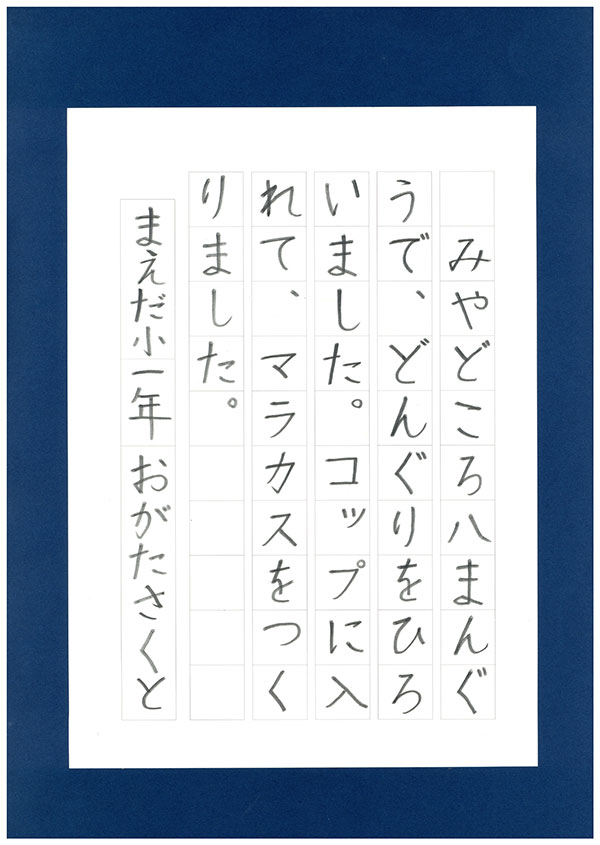 みやどころ八まんぐ
うで、どんぐりをひろ
いました。コップに入
れて、マラカスをつく
りました。
まえだ小一年 おがたさくと